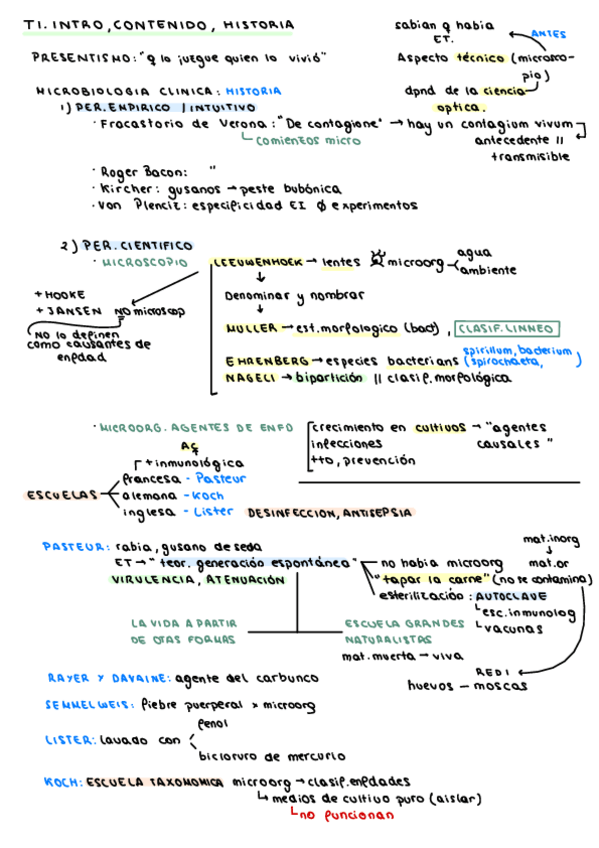 T1. INTRO, CONTENIDO, HISTORIA
sabian q habia ET.
ANTES
PRESENTISMO: "q lo juegue quien lo vivió"
Aspecto técnico (microscopio)
dpnd de la ciencia optica.
MICROBIOLOGIA CLINICA: HISTORIA
1) PER. EMPIRICO / INTUITIVO
· Fracastorio de Verona: "De contagione" → hay un contagium vivum
comienzos micro
antecedente || transmisible
· Roger Bacon: "
· Kircher: gusanos → peste bubónica
· Von Plenciz: especificidad EI ∅ experimentos
2) PER. CIENTIFICO
· MICROSCOPIO
LEEUWENHOEK → lentes microorg
agua
ambiente
+ HOOKE
+ JANSEN NO microscop
NO lo definen como causantes de enfdad
Denominar y nombrar
MULLER → est. morfologico (bact), CLASIF. LINNEO
EHRENBERG → especies bacterians (spirillum, bacterium spirochaeta, )
NAGELI → bipartición || clasif. morfológica
· MICROORG. AGENTES DE ENFD
crecimiento en cultivos → "agentes causales"
infecciones
tto, prevención
+ inmunológica
ESCUELAS
francesa - Pasteur
alemana - Koch
inglesa - Lister DESINFECCION, ANTISEPSIA
PASTEUR: rabia, gusano de seda
ET → "teor. generación espontánea"
VIRULENCIA, ATENUACIÓN
no habia microorg
"tapar la carne" (no se contamina)
esterilización: AUTOCLAVE
esc. inmunolog
vacunas
mat. inorg
mat. or
LA VIDA A PARTIR DE OTAS FORMAS
ESCUELA GRANDES NATURALISTAS
mat. muerta → viva
REDI
huevos — moscas
RAYER Y DAVAINE: agente del carbunco
SEMMELWEIS: fiebre puerperal x microorg
LISTER: lavado con
fenol
bicloruro de mercurio
KOCH: ESCUELA TAXONOMICA microorg → clasif. enfdades
medios de cultivo puro (aislar)
no funcionan